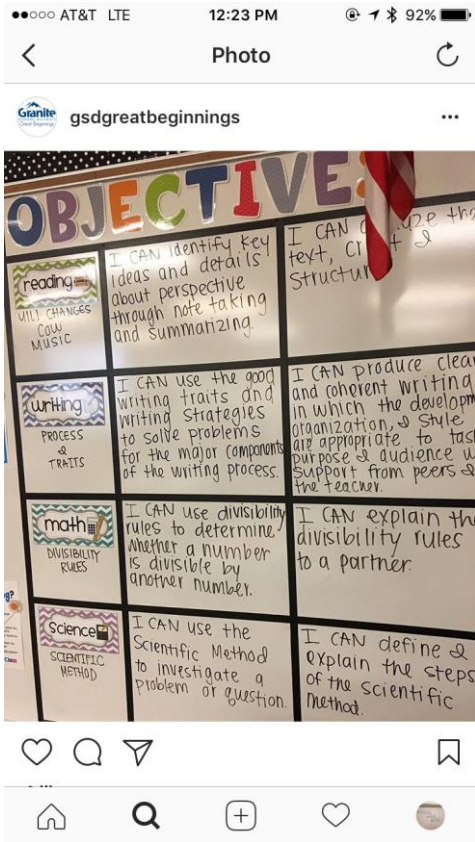 AT&T LTE 12:23 PM 92%
Photo
Granite
gsdgreatbeginnings
OBJECTIVE
reading
UILI CHANGES
COW
MUSIC
I CAN identify key
ideas and details
about perspective
through note taking
and summarizing.
I CAN
text,
Structur
writing
PROCESS
&
TRAITS
I CAN use the good
writing traits and
writing strategies
to solve problems
for the major components
of the writing process.
I CAN produce clear
and coherent writing
in which the developm
organization, & style
are appropriate to tas
purpose & audience w
support from peers &
the teacher.
math
DIVISIBILITY
RULES
I CAN use divisibility
rules to determine
whether a number
is divisible by
another number.
I CAN explain th
divisibility rules
to a partner.
Science
SCIENTIFIC
METHOD
I CAN use the
Scientific Method
to investigate a
problem or question.
I CAN define &
explain the steps
of the scientific
method.